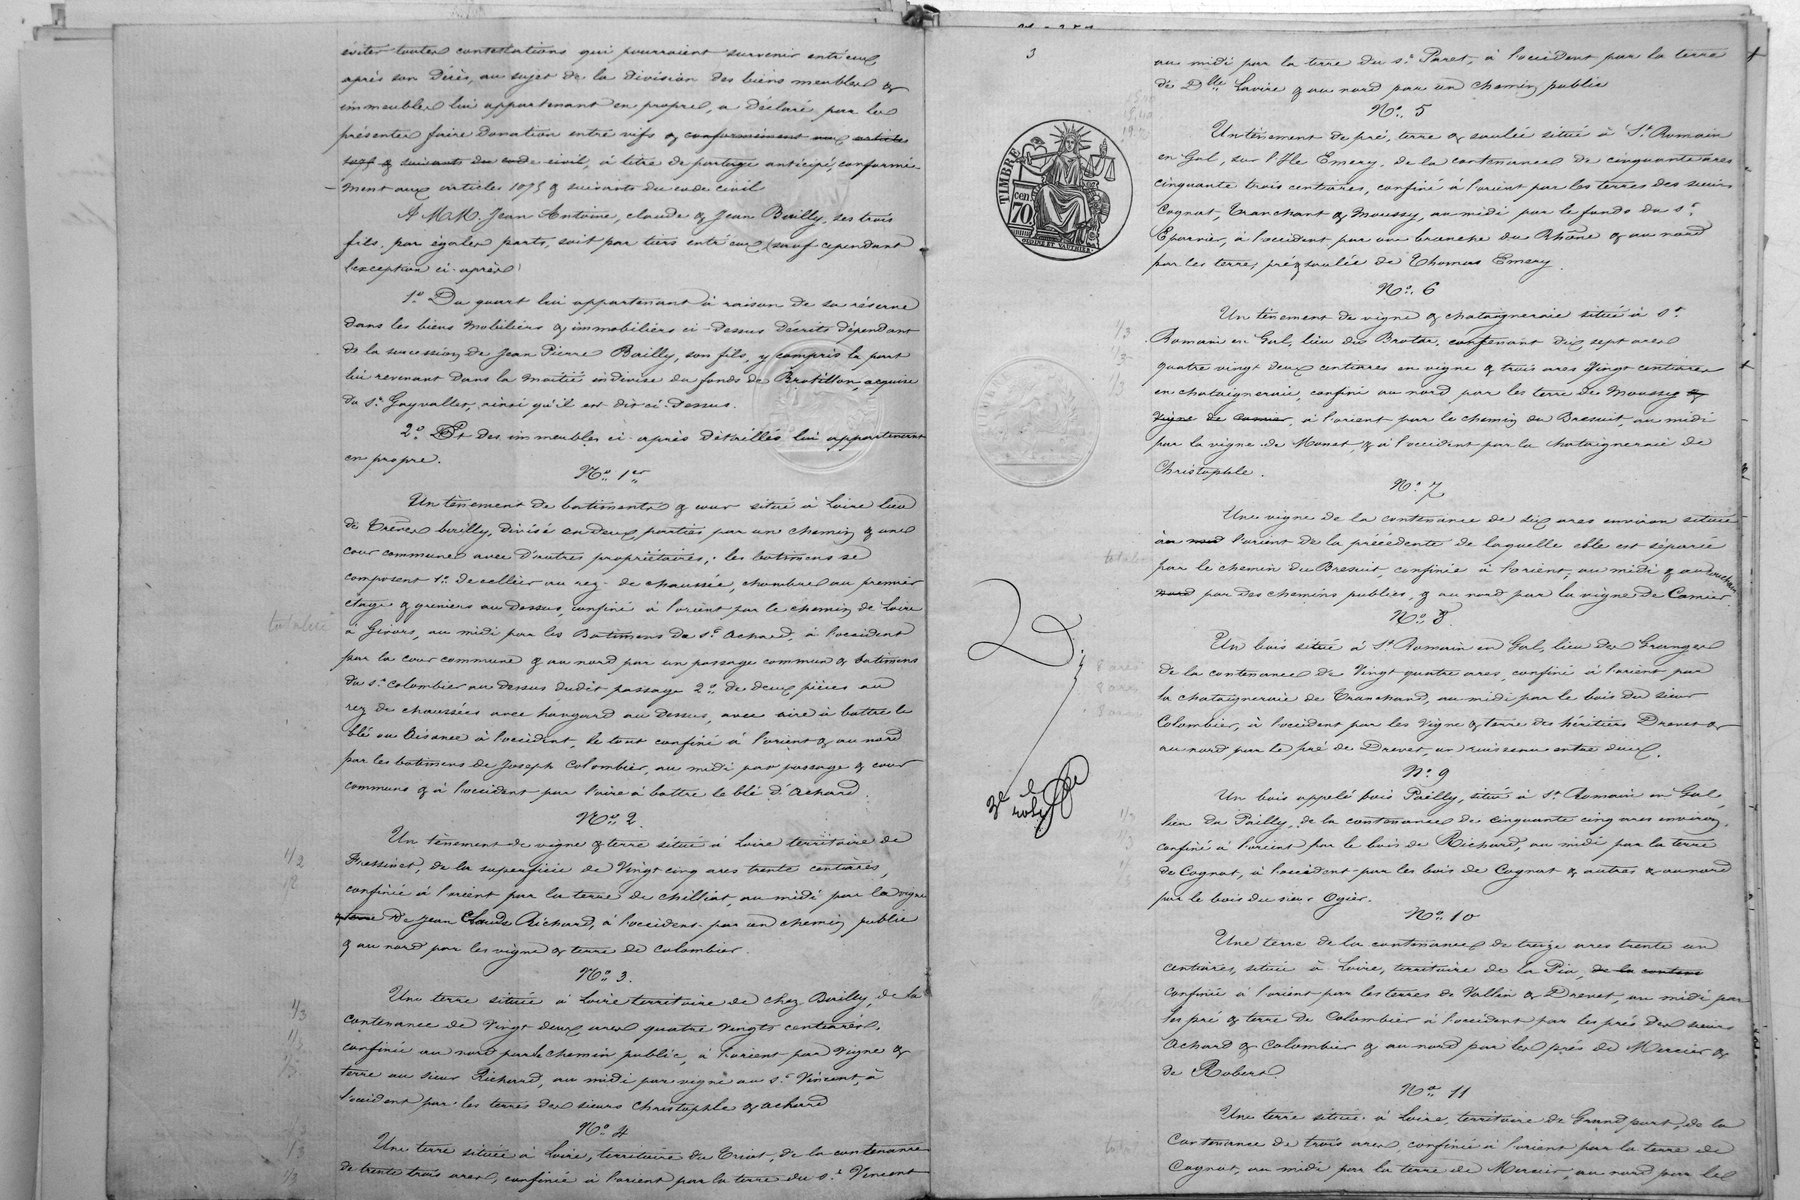 éviter toutes contestations qui pourraient survenir entr'eux
après son décès, au sujet de la division des biens meubles &
immeubles lui appartenant en propre, a déclaré, par les
présentes faire donation entre vifs & conformément aux articles
1075 & suivants du code civil, à titre de partage anticipé, conformé-
ment aux articles 1075 & suivants du code civil
A MM. Jean Antoine, Claude & Jean Bailly, ses trois
fils, par égales parts, soit par tiers entr'eux (sauf cependant
l'exception ci-après)
1º Du quart lui appartenant à raison de sa réserve
dans les biens mobiliers & immobiliers ci-dessus décrits dépendant
de la succession de Jean Pierre Bailly, son fils, y compris la part
lui revenant dans la moitié indivise du fonds de Brotillon, acquise
du sr. Gayvallet, ainsi qu'il est dit ci-dessus.
2º Et des immeubles ci-après détaillés lui appartenant
en propre.
No. 1er
Un tènement de batiments & cour situé à Loire lieu
de Trêves bailly, divisé en deux parties par un chemin & une
cour commune avec d'autres propriétaires; les batimens se
composent 1º de cellier au rez-de-chaussée, chambres au premier
étage & greniers au dessus, confiné à l'orient par le chemin de Loire
totalité
à Givors, au midi par les Batimens de sr. Achard, à l'occident
par la cour commune & au nord par un passage commun & batimens
du sr. Colombier au dessus dudit passage 2º de deux pièces au
rez de chaussées avec hangard au dessus, avec aire à battre le
blé au Bisance à l'occident, le tout confiné à l'orient & au nord
par les batimens de Joseph Colombier, au midi par passage & cour
communs & à l'occident par l'aire à battre le blé d'Achard
No. 2.
Un tènement de vigne & terre situé à Loire territoire de
1/2
Fressinet, de la superficie de Vingt cinq ares trente centiares,
1/2
confiné à l'orient par la terre de chilliat, au midi par la vigne
& terre de Jean Claude Richard, à l'occident par un chemin public
& au nord par les vigne & terre de Colombier.
No. 3.
Une terre située à Loire territoire de chez Bailly, de la
1/3
contenance de Vingt deux ares quatre Vingts centiares,
1/3
confinée au nord par le chemin public, à l'orient par Vigne &
1/3
terre au sieur Richard, au midi par vigne au sr. Vincent, à
l'occident par les terres des sieurs Christophle & achard
No. 4
Une terre située à Loire, territoire du Triot, de la contenance
1/3
de trente trois ares, confinée à l'orient par la terre du sr. Vincent
1/3
3
au midi par la terre du sr. Paret, à l'occident par la terre
de Dlle Lavire & au nord par un chemin public
No. 5
Un tènement de pré, terre & saulée situé à St. Romain
en Gal, sur l'Ile Emery, de la contenance de cinquante ares
cinquante trois centiares, confiné à l'orient par les terres des sieurs
Cognat, Tranchant & Moussy, au midi par le fonds du sr.
Eparvier, à l'occident par une branche du Rhône & au nord
par les terre, pré & saulée de Thomas Emery.
TIMBRE
cen
70
No. 6
Un tènement de vigne & chataigneraie situé à St.
1/3
Romain en Gal, lieu du Brotar, contenant dix sept ares
1/3
quatre vingt deux centiares en vigne & trois ares Vingt centiares
1/3
en chataigneraie, confiné au nord par les terre de Moussy &
vigne de Camier, à l'orient par le chemin du Bresuit, au midi
par la vigne de Monat, & à l'occident par la chataigneraie de
Christophle.
No. 7
Une vigne de la contenance de dix ares environ située
au nord l'orient de la précédente de laquelle elle est séparée
par le chemin du Bresuit, confinée à l'orient, au midi & au couchant
nord par des chemins publics, & au nord par la vigne de Camier.
No. 8.
Un bois situé à St. Romain en Gal, lieu des Granges
8 ares
de la contenance de Vingt quatre ares, confiné à l'orient par
8 ares
la chataigneraie de Tranchand, au midi par le bois du sieur
8 ares
Colombier, à l'occident par les Vigne & terre des héritiers Drevet &
au nord par le pré de Drevet, un ruisseau entre deux.
No. 9
Un bois appelé bois Pailly, situé à St. Romain en Gal,
1/3
lieu du Pailly, de la contenance de cinquante cinq ares environ,
1/3
confiné à l'orient par le bois de Richard, au midi par la terre
de Cognat, à l'occident par les bois de Cognat & autres & au nord
par le bois du sieur Ogier.
No. 10
Une terre de la contenance de treize ares trente un
centiares, située à Loire, territoire de la Pia, de la conten
confinée à l'orient par les terres de Vallin & Drevet, au midi par
les pré & terre de Colombier à l'occident par les prés des sieurs
Achard & Colombier & au nord par les prés de Mercier &
de Robert.
No. 11
Une terre située à Loire, territoire de Grand part, de la
contenance de trois ares, confinée à l'orient par la terre de
Cognat, au midi par la terre de Mercier, au nord par les